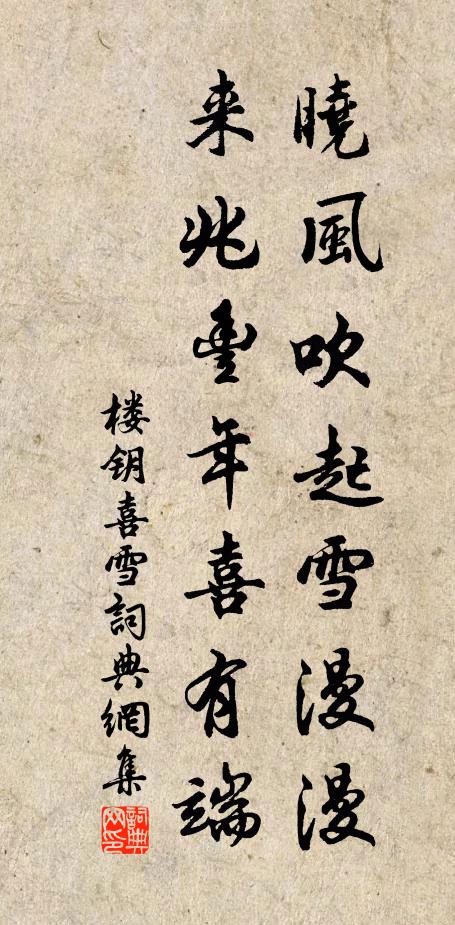 曉風吹起雪漫漫
来兆豐年喜有端
楼钥喜雪詞典網集
詞典网印